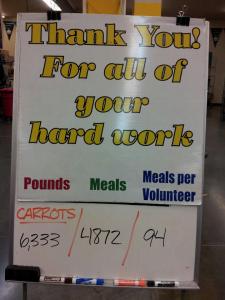 Thank You!
For all of
your
hard work
Pounds Meals Meals per
Volunteer
CARROTS
6,333 / 4872 / 94